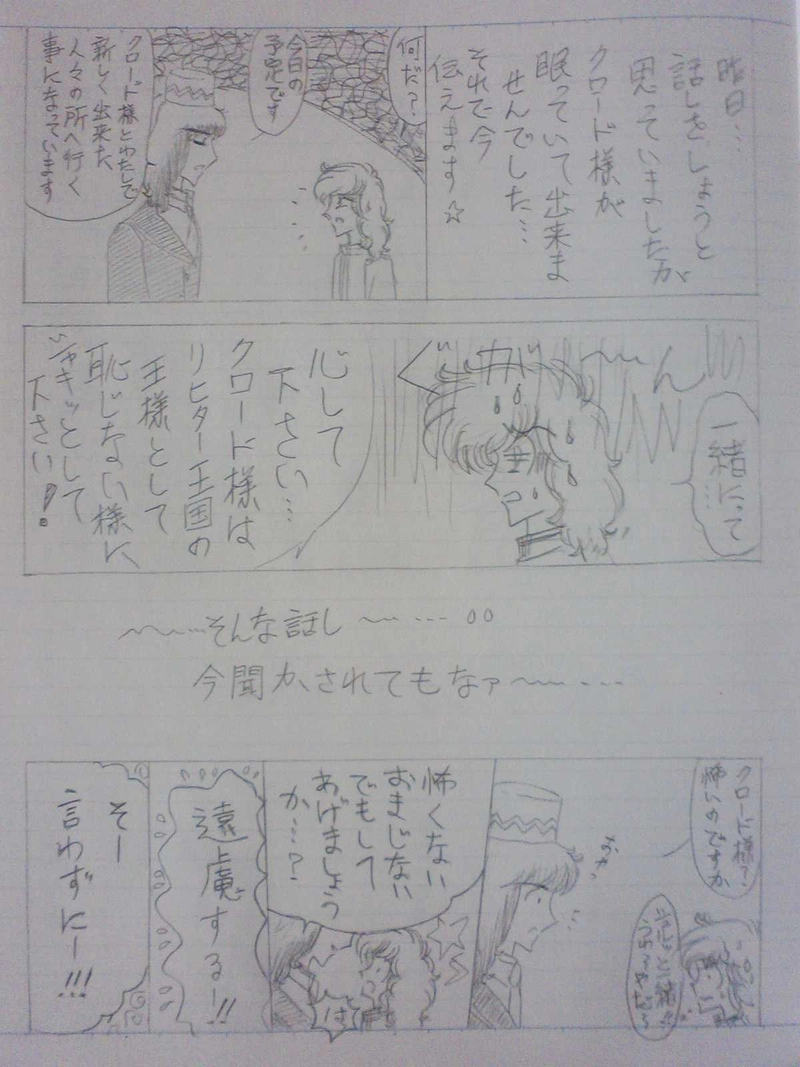 昨日…
話しを、しょうと
思っていましたが
クロード様が
眠っていて出来ま
せんでした…
それで今
伝えます☆
何だ？
今日の
予定です
クロード様とわたしで
新しく出来た
人々の所へ行く
事になっています
一緒にって
…
がーん
心して
下さい…
クロード様は
リヒター王国の
王様として
恥じない様に
シャキッとして
下さい！
〜〜…そんな話し〜…
今聞かされてもなァ〜…
クロード様？
怖いのですか
怖くない
おまじない
でもして
あげましょう
か…？
は
遠慮するー!!
そー
言わずにー!!!